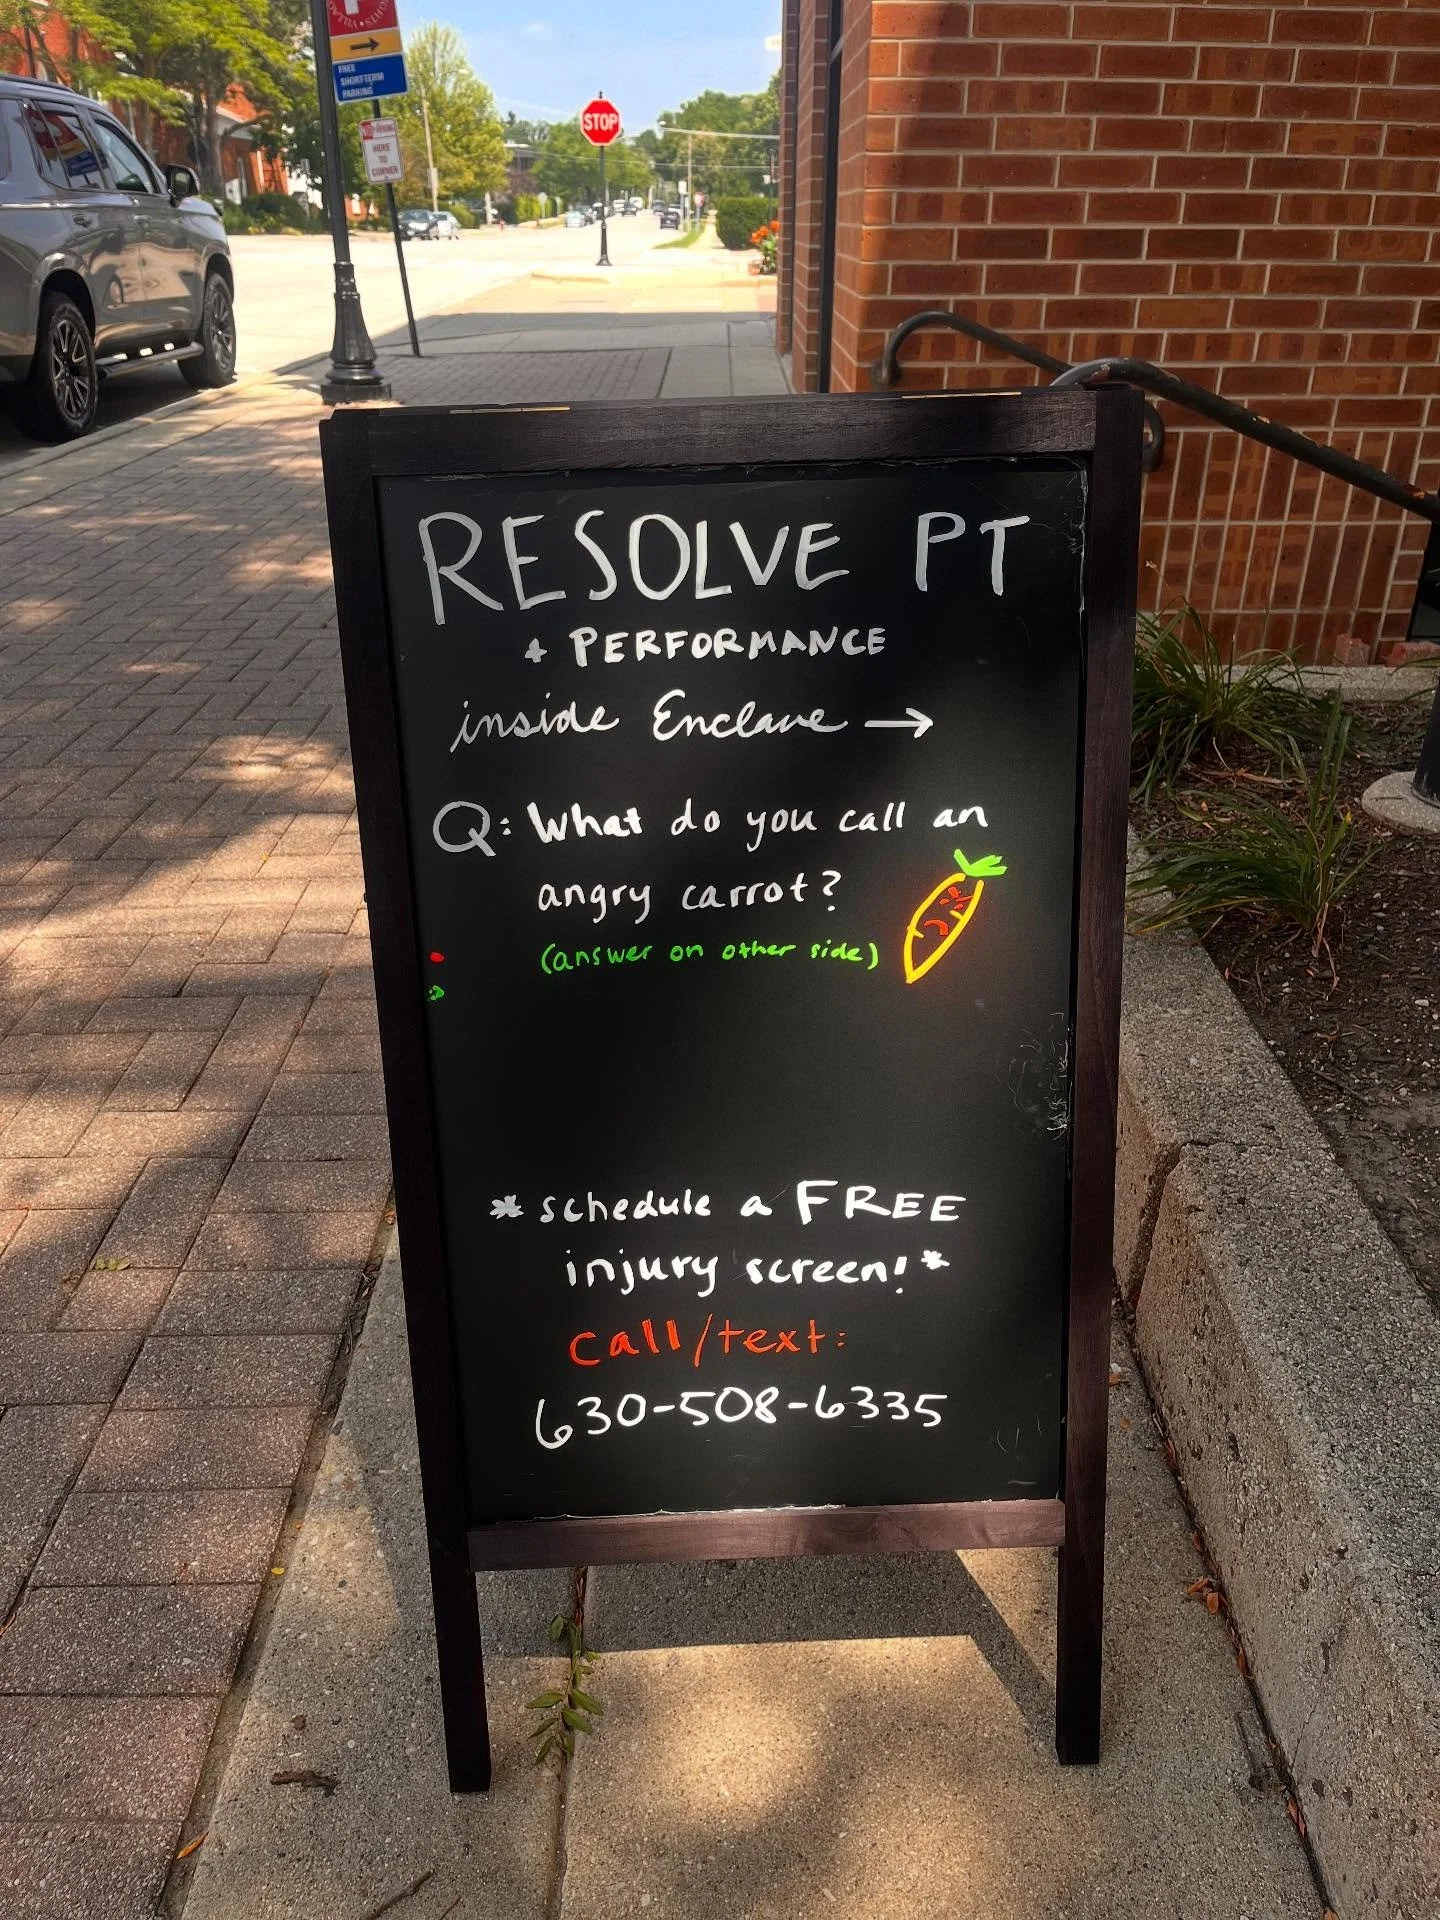 FREE
SHORT TERM
PARKING
HERE
TO
CORNER
STOP
RESOLVE PT
+ PERFORMANCE
inside Enclave →
Q: What do you call an
angry carrot?
(answer on other side)
*schedule a FREE
injury screen!*
call/text:
630-508-6335